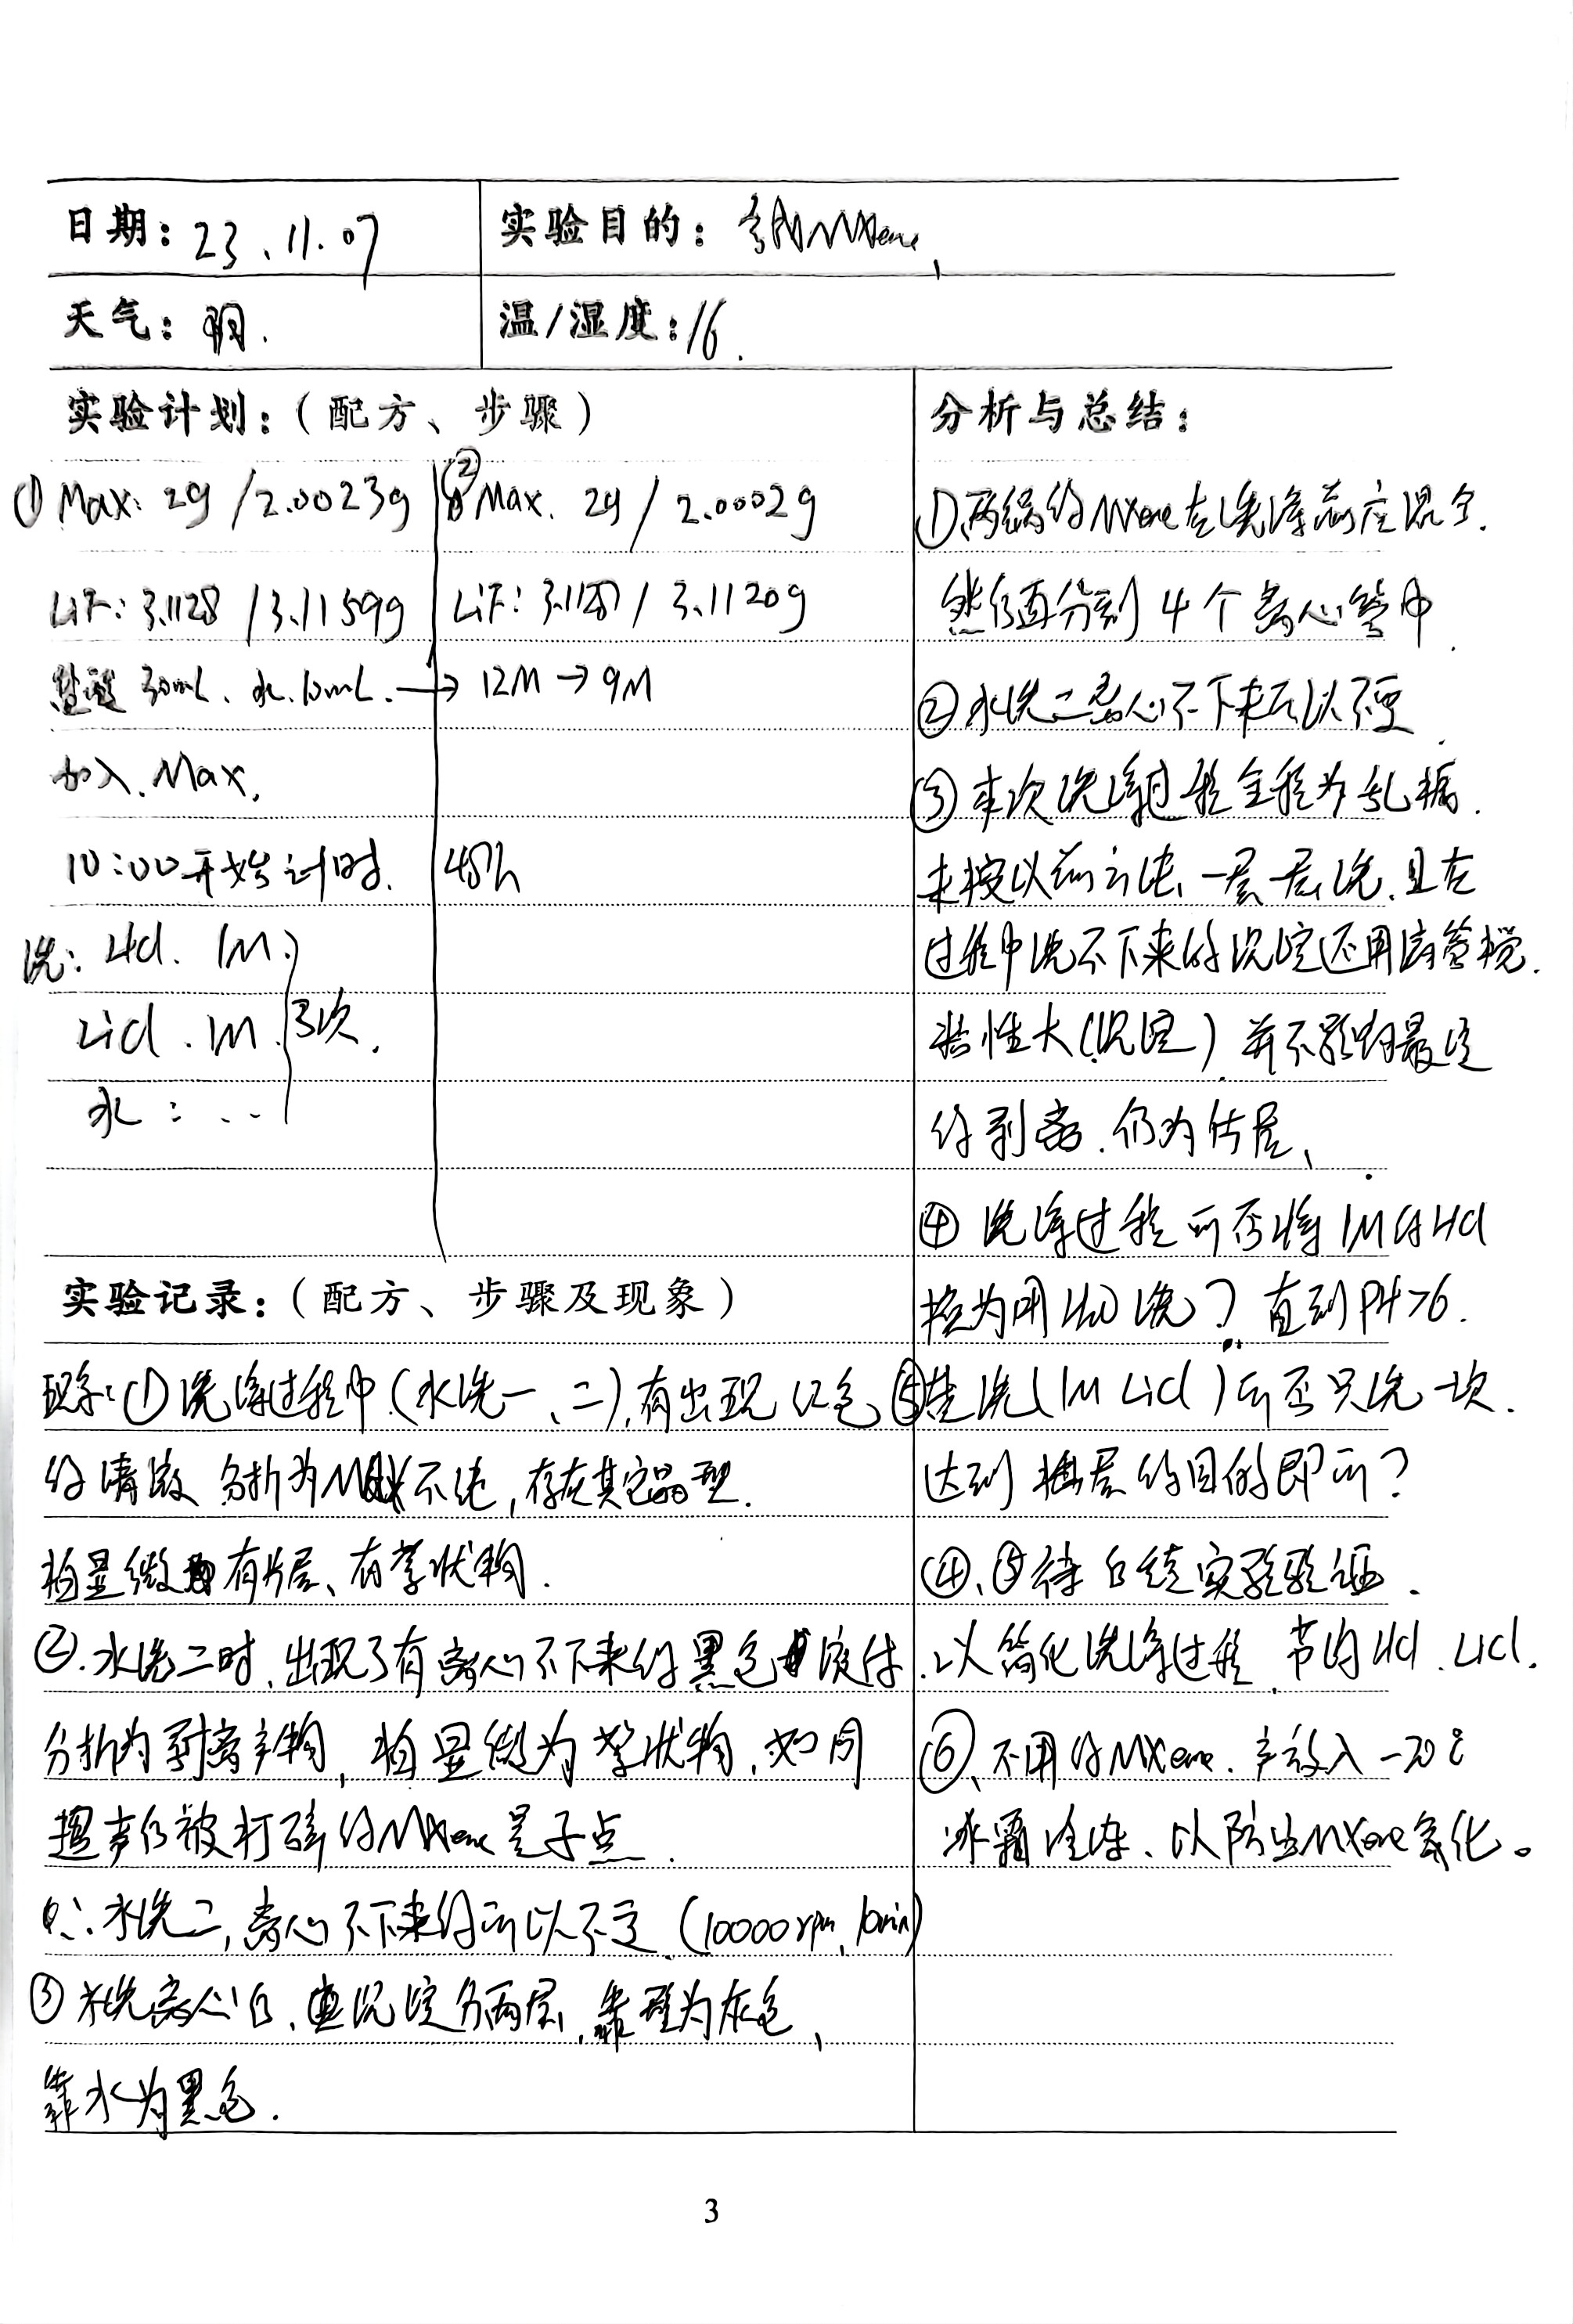 日期: 23.11.07
实验目的: 制MXene
天气: 阴.
温/湿度: 16.
实验计划:(配方、步骤)
① Max: 2g / 2.0023g
② Max. 2g / 2.0002g
LiF: 3.1128 / 3.1159g
LiF: 3.1128 / 3.1120g
盐酸 30mL. 水.10mL. → 12M → 9M
加入.Max.
10:00开始计时. 48h
洗: HCl. 1M.
LiCl. 1M. 3次.
水: ...
实验记录:(配方、步骤及现象)
现象:①洗涤过程中(水洗一、二),有出现红色
的清液 分析为MAX不纯,存在其它晶型.
拍显微 有片层、有棒状物.
②.水洗二时,出现了有离心不下来的黑色液体
分析为剥离产物,拍显微为絮状物,如同
超声后被打碎的MXene量子点.
∴水洗二,离心不下来的可以不要.(10000rpm,10min)
③水洗离心后,沉淀分两层,靠壁为灰色,
靠水为黑色.
分析与总结:
①两锅的MXene在洗涤前应混合.
然后再分到4个离心管中.
②水洗二离心不下来可以不要.
③本次洗涤过程全程为乱摇.
未按以前方法,一层一层洗.且在
过程中洗不下来的沉淀还用滴管搅.
粘性大(沉淀)并不影响最后
的剥离.仍为片层、
④洗涤过程可否将1M的HCl
换为用H2O洗?直到PH>6.
⑤盐洗(1M LiCl)可否只洗一次.
达到插层的目的即可?
④、⑤待后续实验验证.
以简化洗涤过程.节约HCl.LiCl.
⑥、不用的MXene.应放入-20℃
冰箱冷冻、以防止MXene氧化。
3